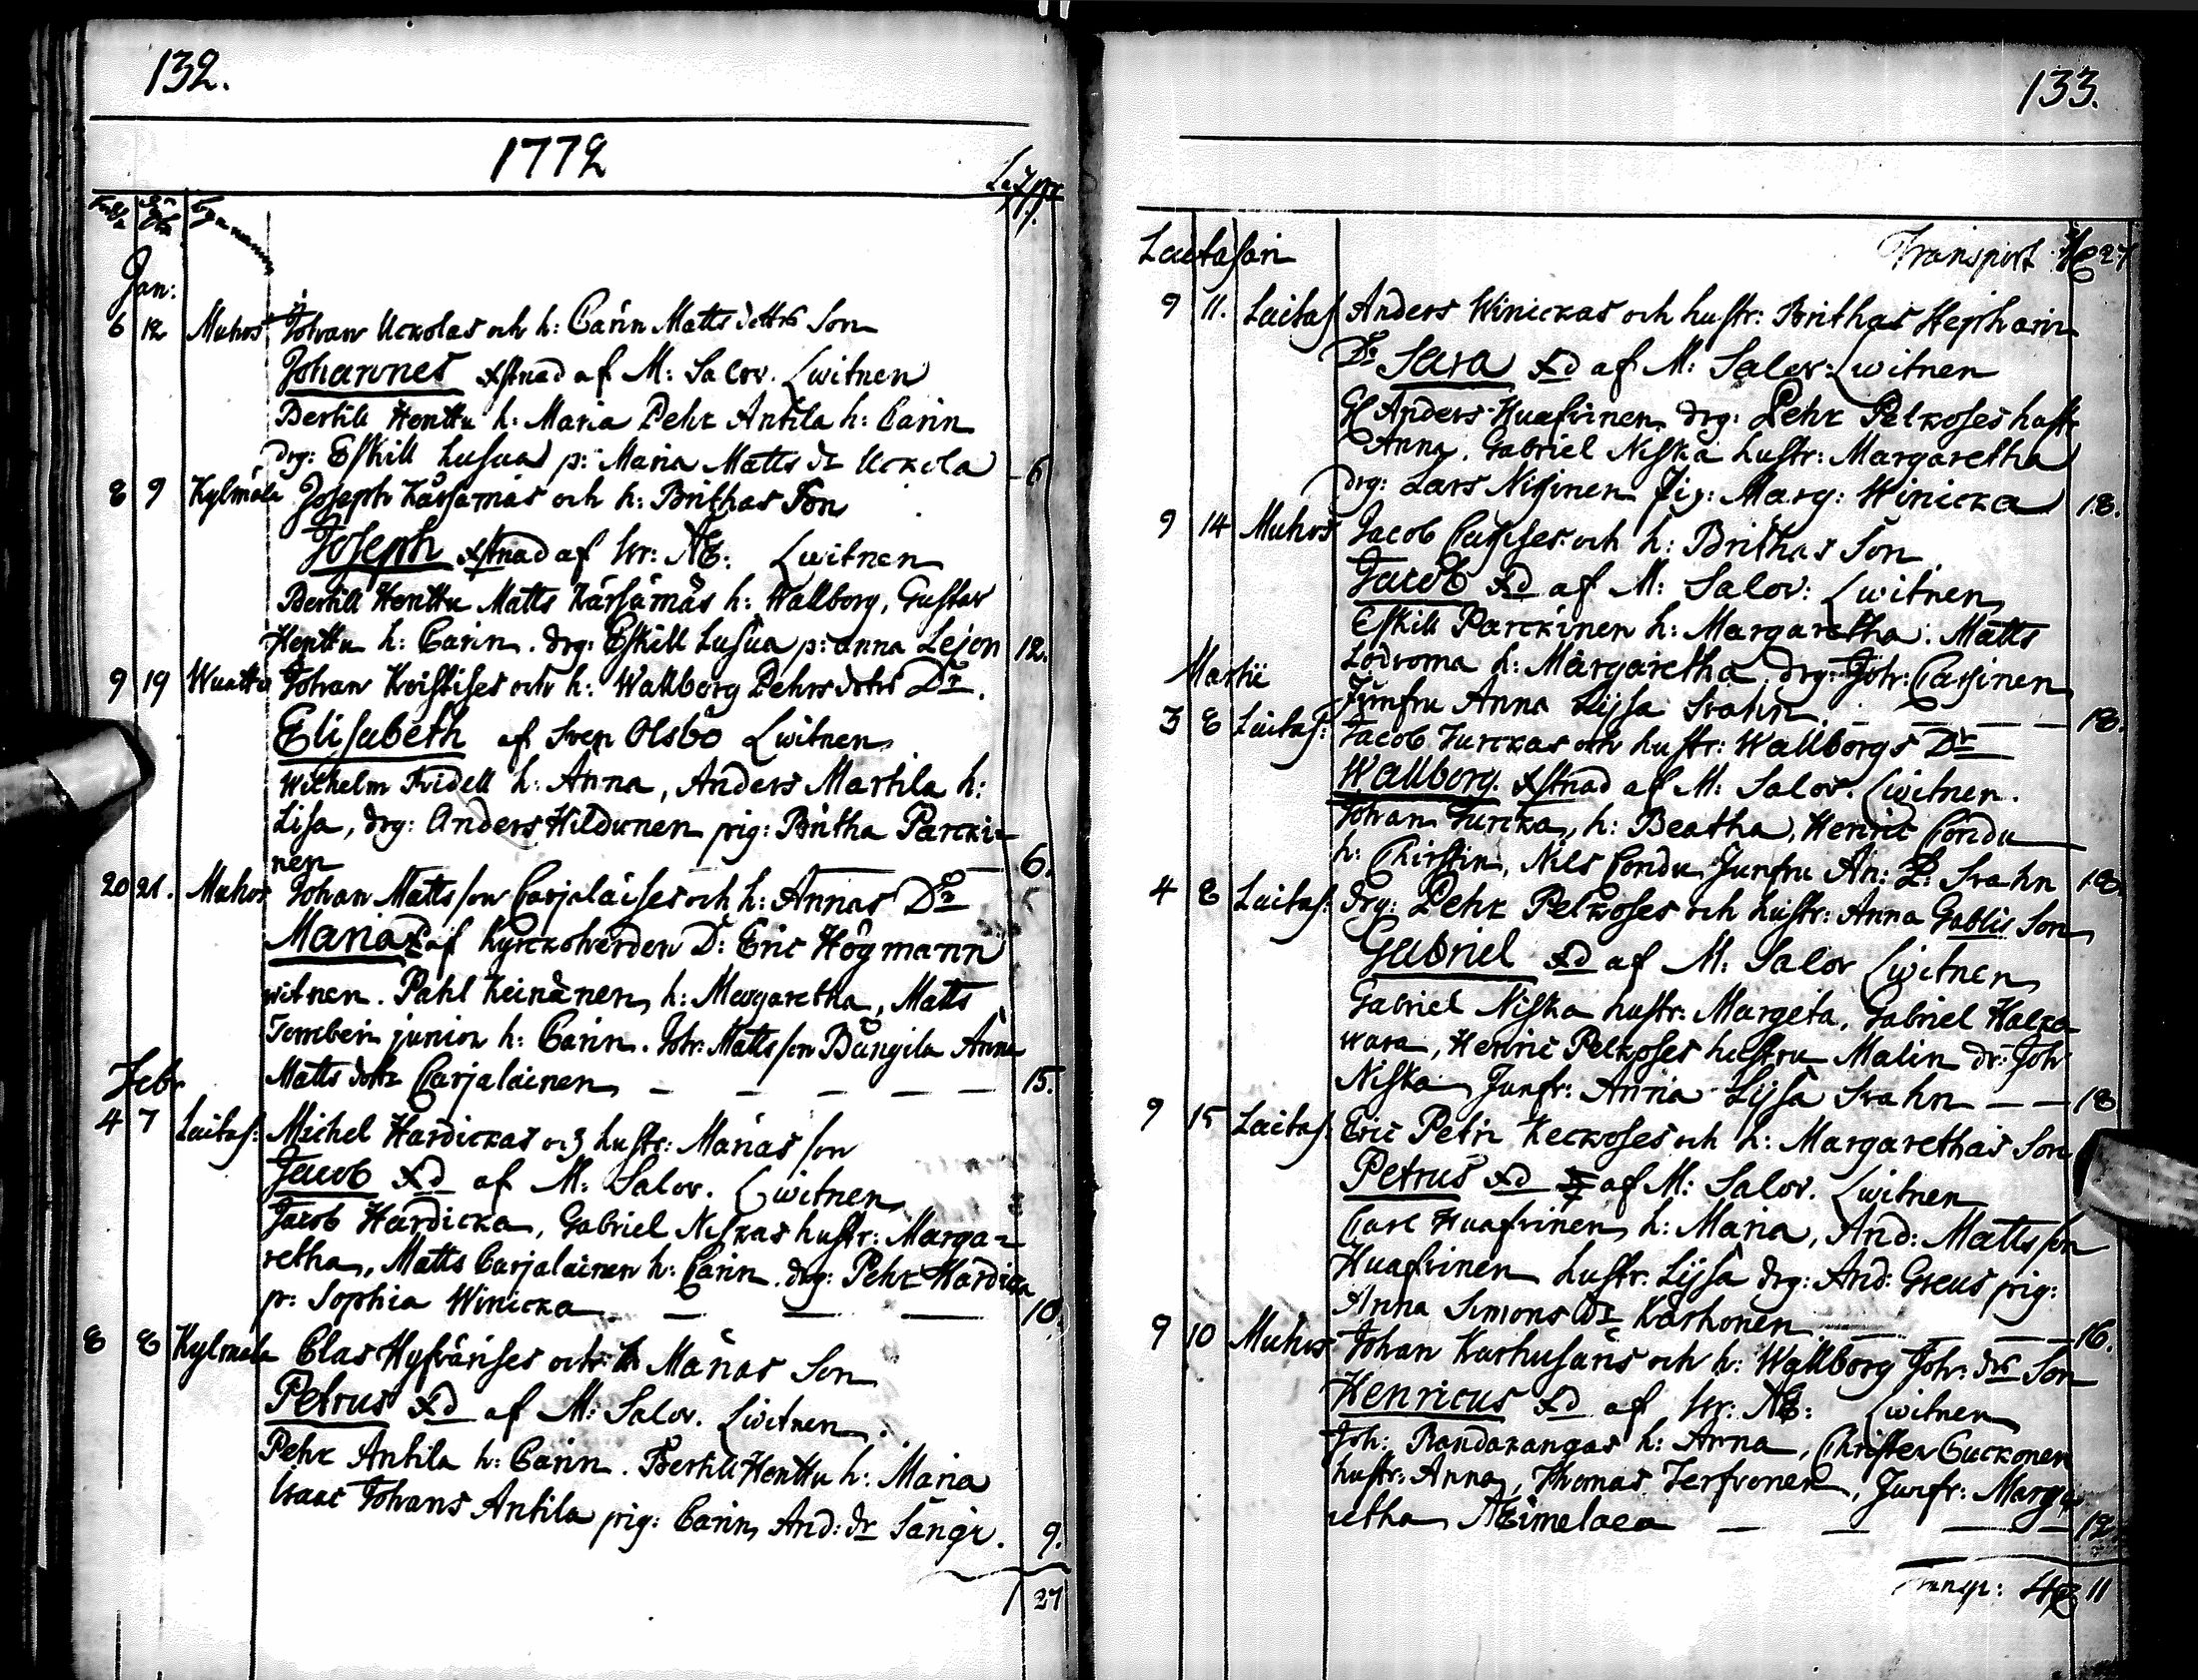 132.
1772
Jan:
6 12 Muhos Johan Uckolas och h: Carin Matts dotters Son
Johannes xstnad af M: Salov. Witnen
Bertill Henttu h: Maria Pehr Antila h: Carin
drg: Eskill Lusua p: Maria Matts dr Uckola 6
8 9 Kylmälä Joseph Kärsämäs och h: Brithas Son
Joseph xstnad af hr: AE: Witnen
Bertill Henttu Matts Kärsämäs h: Wallborg, Gustav
Henttu h: Carin. drg: Eskill Lusua p: Anna Lejon 12.
9 19 Johan Koistises och h: Wallborg Pehrs dotrs Dr.
Elisabeth af Sven Olsbo Witnen
Wilhelm Fridell h: Anna, Anders Martila h:
Lisa, drg: Anders Hildunen pig: Britha Parcki=
nen 6.
20 21. Muhos Johan Matts son Carjalaises och h: Annas Dr
Maria xd af Kyrckoherden D: Eric Högmann
witnen. Pahl Keinänen, h: Margaretha, Matts
junior h: Carin. Joh: Matts son Bångila Anna
Matts dottr Carjalainen — — — — 15.
Febr
4 7 Laitas: Michel Hardickas och hustr: Marias son
Jacob xd af M: Salov. Witnen
Jacob Hardicka, Gabriel Niskas hustr: Marga=
retha, Matts Carjalainen h: Carin. drg: Pehr Hardicka
p: Sophia Winicka — — — 10.
8 8 Kylmälä Clas Hyfvärises och h Marias Son
Petrus xd af M: Salov. Witnen.
Pehr Antila h: Carin. Bertill Henttu h: Maria
Isaac Johans Antila pig: Carin And: dr Sångr. 9.
27
133.
Laitasari Transport 27
9 11. Laitas Anders Winickas och hustr: Brithas Stephans
Dr Sara xd af M: Salov: Witnen
Gl Anders Huafvinen, drg: Pehr Pelkoses hustr
Anna, Gabriel Niska hustr: Margaretha
drg: Lars Nissinen Pig: Marg: Winicka 18.
9 14 Muhos Jacob Cassises och h: Brithas Son
Jacob xd af M: Salov: Witnen
Eskill Parckinen h: Margaretha: Matts
Lodvoma h: Margaretha, drg: Joh: Cassinen
Jumfru Anna Lijsa Svahn. — — — 18.
Martii
3 8 Laitas: Jacob Jurckas och hustr: Wallborgs Dr
Wallborg. xstnad af M: Salov. Witnen.
Johan Jurcka, h: Beatha, Henric Cordu
h: Chirstin, Nils Cordu Jumfru An: L: Svahn 18.
4 8 Laitas: drg: Pehr Pelkoses och hustr: Anna Gablis Son
Gabriel xd af M: Salov Witnen
Gabriel Niska hustr: Margeta, Gabriel Halko
wara, Henric Pelkoses hustru Malin dr: Joh
Niska, Jumfr: Anna Lijsa Svahn — — 18
9 15 Laitas: Eric Petri Keckoses och h: Margarethas Son
Petrus xd af M: Salov. Witnen
Carl Huafvinen, h: Maria, And: Matts son
Huafvinen hustr: Lijsa drg: And: Greus pig:
Anna Simons Dr Karhonen — — 16.
9 10 Muhos Johan Karhusaris och h: Wallborg Joh: drs Son
Henricus xd af hr: AE: Witnen
Joh: Randakangas h: Anna, Christer Cuckonen
hustr: Anna, Thomas Terfvonen, Jumfr: Marga
retha Aeimelaea — — — 12.
Transp: 4 11